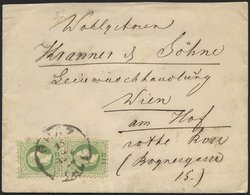 Wohlgeboren
Kranner & Söhne
Leinwandhandlung
Wien
am Hof
rothe Rose
(Bognergasse
15.)